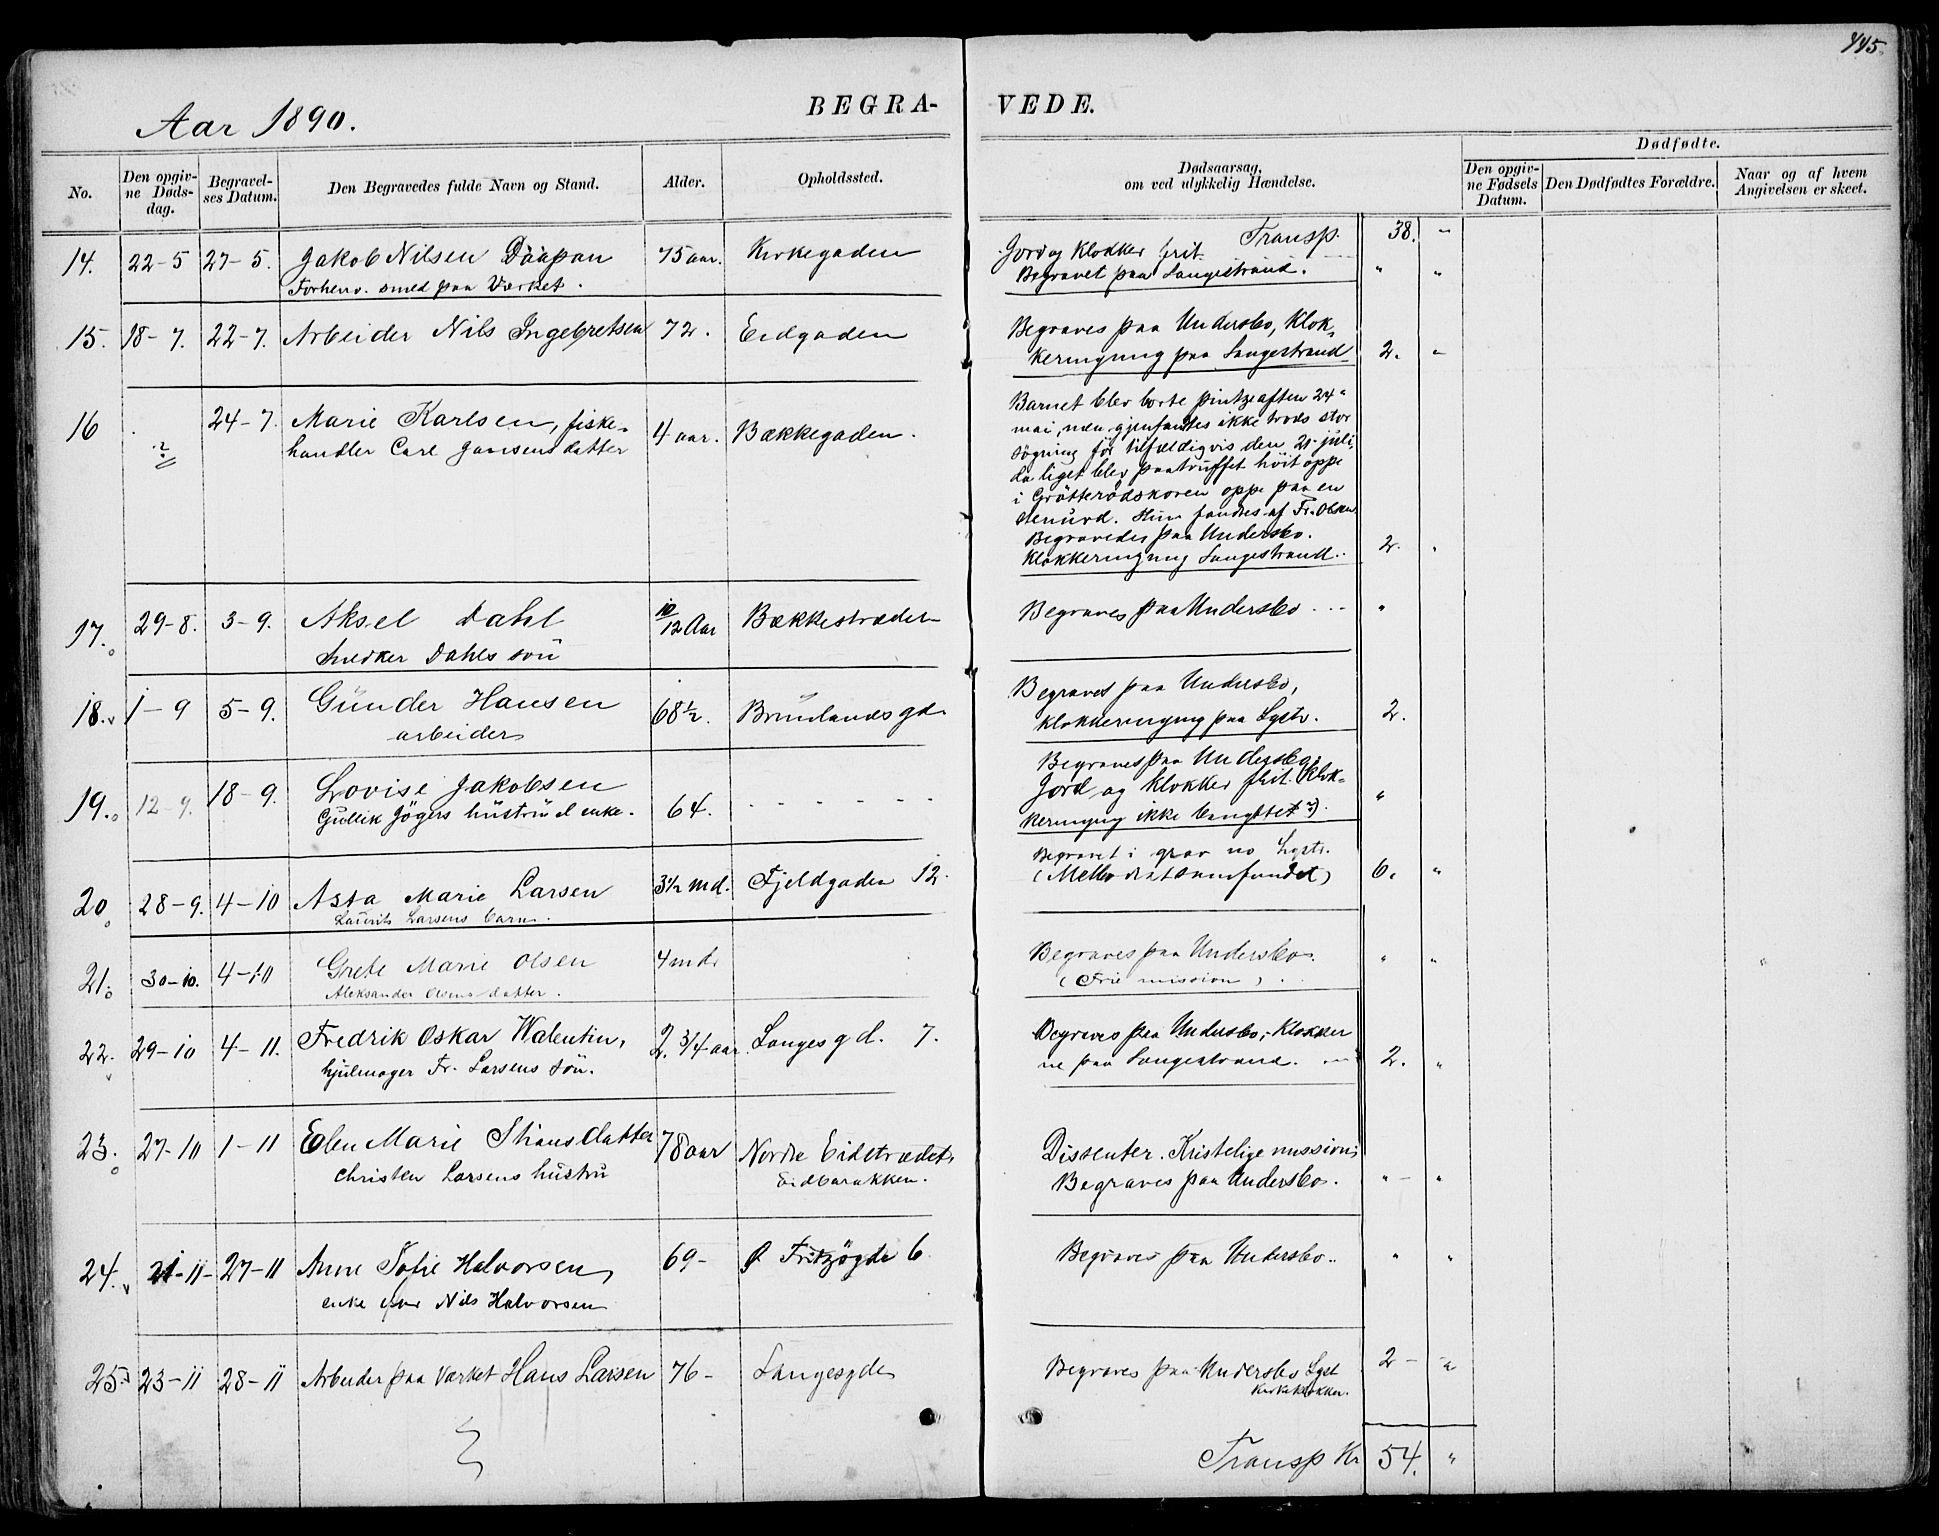 445.
Aar 1890.
BEGRA-
VEDE.
No.
Den opgiv-
ne Døds-
dag.
Begravel-
ses Datum.
Den Begravedes fulde Navn og Stand.
Alder.
Opholdssted.
Dødsaarsag,
om ved ulykkelig Hændelse.
Dødfødte.
Den opgiv-
ne Fødsels
Datum.
Den Dødfødtes Forældre.
Naar og af hvem
Angivelsen er skeet.
14. 22-5 27-5. Jakob Nilsen 75 aar. Kirkegaden
Forhenv. smed paa Værket.
Transp. 38. "
Jord og Klokker frit
Begravet paa Langestrand. " "
15. 18-7. 22-7. Arbeider Nils Ingebretsen 72. Eidgaden
Begraves paa Undersbo, Klok-
keringning paa Langestrand 2. "
16 ? 24-7. Marie Karlsen, fiske-
handler Carl Jansens datter 4 aar. Bækkegaden.
Barnet blev borte pintseaften 24"
mai, men gjenfandtes ikke trods stor
søgning før tilfældigvis den 21. juli,
da liget blev paatruffet høit oppe
i Gråtterødskoven oppe paa en
stenurd. Hun fandtes af Fr. Olsen
Begravedes paa Undersbo.
Klokkeringning Langestrand. 2. "
17. 29-8. 3-9. Aksel Dahl 10/12 Aar Bækkestrædet
Snedker Dahls søn
Begraves paa Undersbo "
18. 1-9 5-9. Günder Hansen 68½. Brunlandsgd.
arbeider
Begraves paa Undersbo,
klokkeringning paa Lgstr. 2.
19. 12-9. 18-9. Lovise Jakobsen 64. - - - - - -
Gullik Jøgers hustru el enke.
Begraves paa Undersbo,
Jord og Klokker frit. Klok-
keringning ikke benyttet ?). "
20. 28-9. 4-10 Asta Marie Larsen 3½ md. Fjeldgaden 12.
Laurits Larsens barn.
Begravet i grav no Lgstr.
(Methodistsamfundet) 6. "
21. 30-10. 4-10 Grete Marie Olsen 4 md.
Aleksander Olsens datter.
Begraves paa Undersbo. " "
(Frie mission)
22. 29-10 4-11. Fredrik Oskar Walentin, 2. 3/4 aar. Langesgd. 7.
hjulmager Fr. Larsens søn.
Begraves paa Undersbo, Klokker
ne paa Langestrand. 2. "
23. 27-10 1-11 Elen Marie 78 aar Nordre Eidstrædet,
Christen Larsens hustru Eidbarakken.
Dissenter. Kristelige mission,
Begraves paa Undersbo. " "
24. 21-11- 27-11 Anne Sofie Halvorsen, 69- Ø Fritzøgde 6.
enke efter Nils Halvorsen
Begraves paa Undersbo. " "
25. 23-11 28-11 Arbeider paa Værket Hans Larsen 76- Langesgde
Begraves paa Undersbo Lgst 2 - "
Kirkeklokker.
Transp Kr 54. "